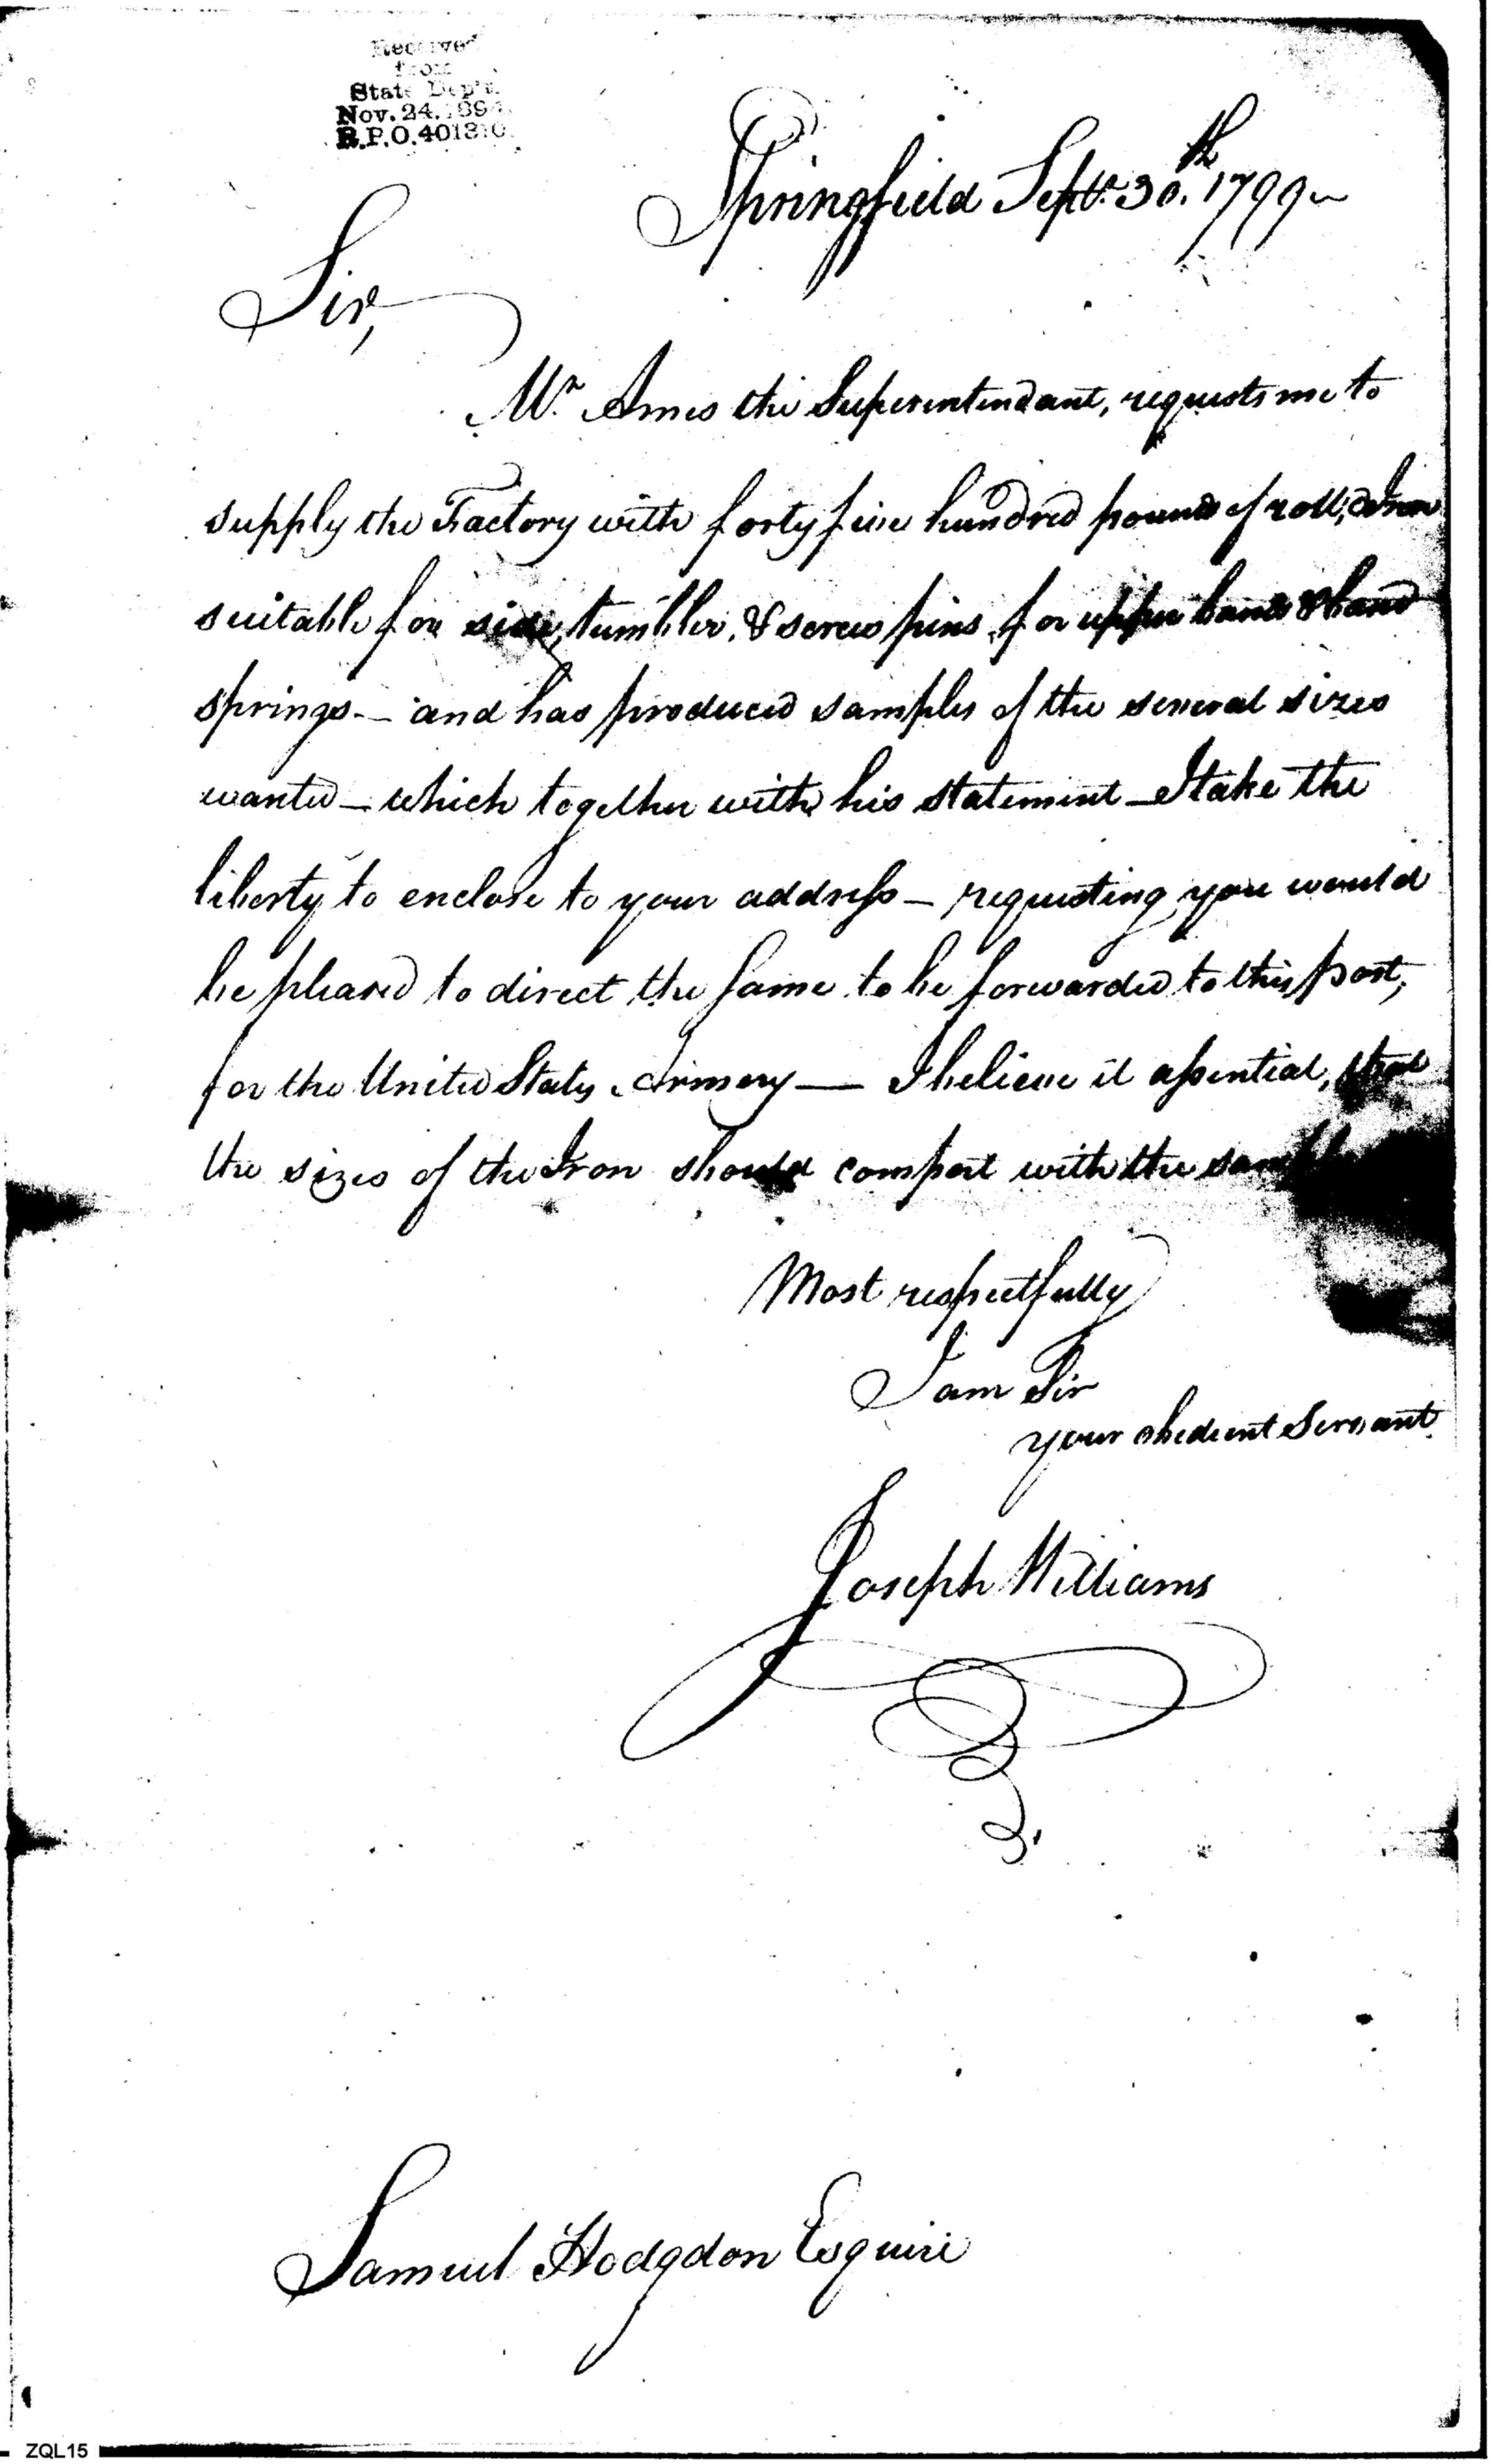 Received
from
State Dep't.
Nov. 24. 1894
R.P.O. 401310.
Springfield Septr. 30th. 1799
Sir,
Mr. Ames the Superintendant, requests me to
supply the Factory with forty five hundred pounds of roll'd Iron
suitable for side, tumbler, & screw pins, for upper bands & band
springs. — and has produced samples of the several sizes
wanted — which together with his statement — I take the
liberty to enclose to your address — requesting you would
be pleased to direct the same to be forwarded to this post,
for the United States Armory — I believe it assential, that
the sizes of the Iron should comport with the
Most respectfully
I am Sir
your obedient Servant
Joseph Williams
Samuel Hodgdon Esquire
ZQL15